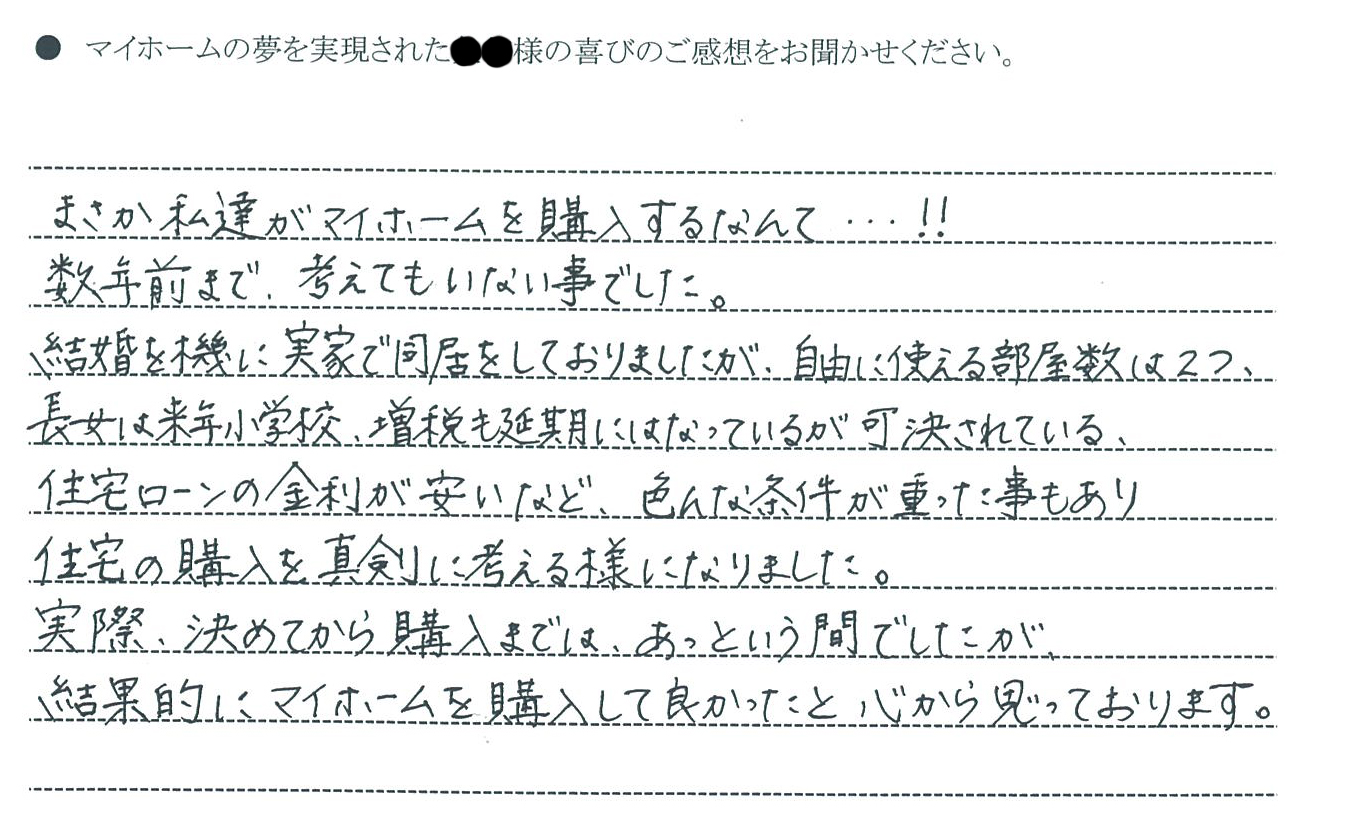 ● マイホームの夢を実現された●●様の喜びのご感想をお聞かせください。
まさか私達がマイホームを購入するなんて…!!
数年前まで、考えてもいない事でした。
結婚を機に実家で同居をしておりましたが、自由に使える部屋数は2つ、
長女は来年小学校、増税も延期にはなっているが可決されている、
住宅ローンの金利が安いなど、色んな条件が重った事もあり
住宅の購入を真剣に考える様になりました。
実際、決めてから購入までは、あっという間でしたが、
結果的にマイホームを購入して良かったと心から思っております。